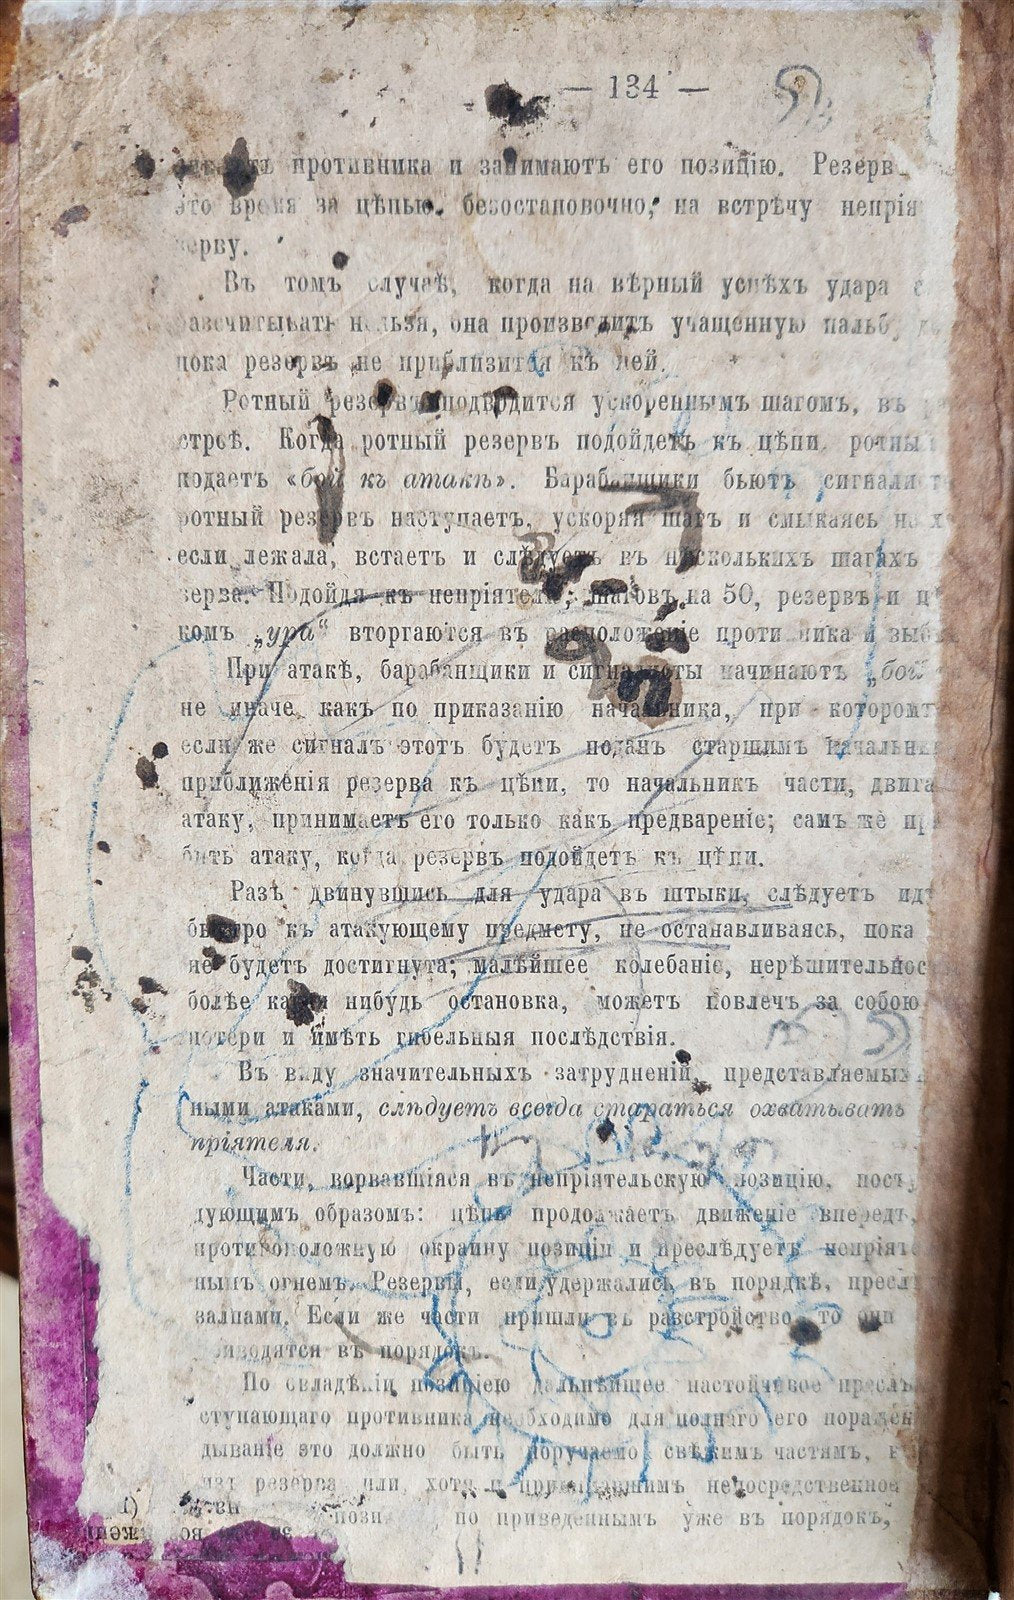 — 134 —
противника и занимаютъ его позицію. Резерв
это время за цѣпью, безостановочно, на встрѣчу непрія
зерву.
Въ томъ случаѣ, когда на вѣрный успѣхъ удара
разсчитывать нельзя, она производитъ учащенную пальбу
пока резервъ не приблизится къ ней.
Ротный резервъ подводится ускореннымъ шагомъ, въ
строѣ. Когда ротный резервъ подойдетъ къ цѣпи, ротны
подаетъ «бой къ атакѣ». Барабанщики бьютъ, сигналист
ротный резервъ наступаетъ, ускоряя шагъ и смыкаясь на х
если лежала, встаетъ и слѣдуетъ въ нѣсколькихъ шагахъ
зерва. Подойдя къ непріятелю, шаговъ на 50, резервъ и ц
комъ „ура“ вторгаются въ расположеніе противника и выб
При атакѣ, барабанщики и сигналисты начинаютъ „бой
не иначе какъ по приказанію начальника, при которомъ
если же сигналъ этотъ будетъ поданъ старшимъ начальни
приближенія резерва къ цѣпи, то начальникъ части, двига
атаку, принимаетъ его только какъ предвареніе; самъ же пр
бить атаку, когда резервъ подойдетъ къ цѣпи.
Разъ двинувшись для удара въ штыки, слѣдуетъ идт
быстро къ атакующему предмету, не останавливаясь, пока
не будетъ достигнута; малѣйшее колебаніе, нерѣшительнос
болѣе какая нибудь остановка, можетъ повлечь за собою
потери и имѣть гибельныя послѣдствія.
Въ виду значительныхъ затрудненій, представляемыхъ
ными атаками, слѣдуетъ всегда стараться охватывать
пріятеля.
Части, ворвавшіяся въ непріятельскую позицію, посту
дующимъ образомъ: цѣпь продолжаетъ движеніе впередъ,
противоположную окраину позиціи и преслѣдуетъ непріят
нымъ огнемъ. Резервы, если удержались въ порядкѣ, пресл
залпами. Если же части пришли въ разстройство, то они
приводятся въ порядокъ.
По овладѣніи позиціею дальнѣйшее настойчивое пресл
ступающаго противника необходимо для полнаго его пораже
дываніе это должно быть поручаемо свѣжимъ частямъ,
изъ резерва или хотя и принимавшимъ непосредственное
по приведеннымъ уже въ порядокъ,